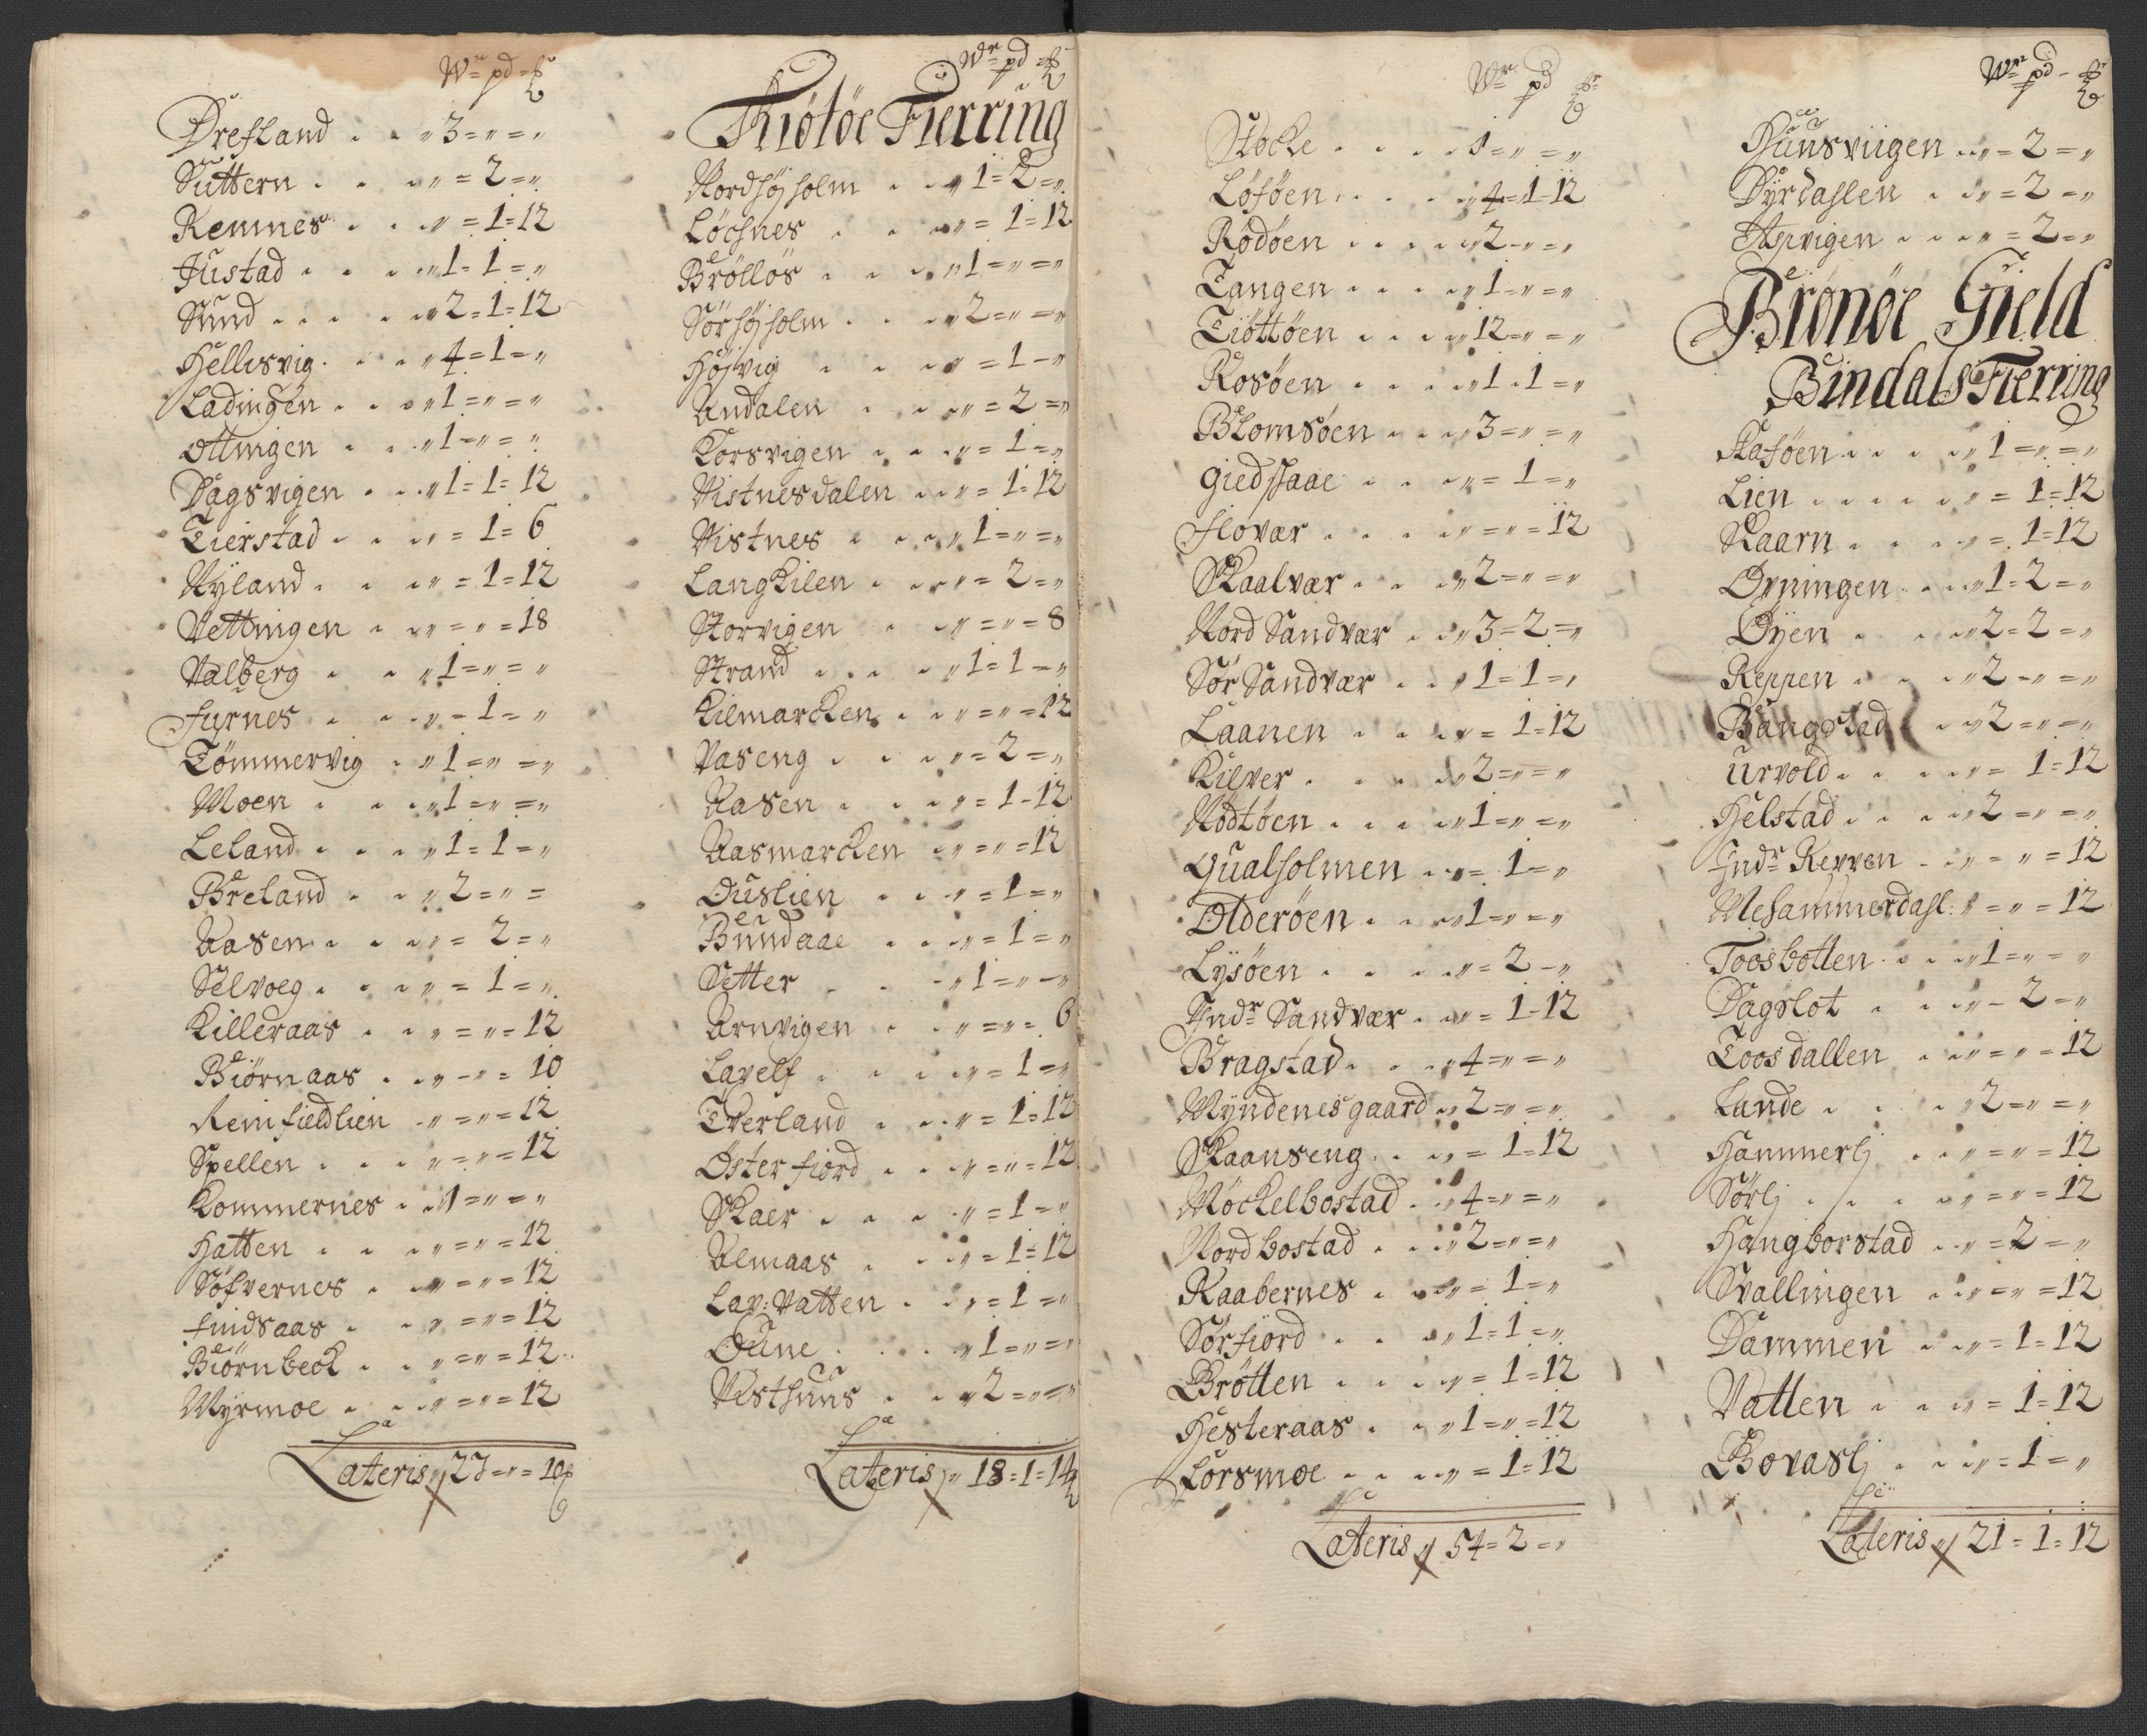 Wr pd
Drefland . . „ 3 = „ = „
Suttern . . „ = 2 = „
Remnes . . „ = 1 = 12
Justad . . . „ 1 = 1 = „
Sund . . . . „ 2 = 1 = 12
Hellisvig . . „ 4 = 1 = „
Ladingen . . „ 1 = „ = „
Ottingen . . „ 1 = „ = „
Dagsvigen . . „ 1 = 1 = 12
Tierstad . . „ = 1 = 6
Nÿland . . . „ = 1 = 12
Vettingen . „ = „ = 18
Valberg . . „ 1 = „ = „
Furnes . . . „ = 1 = „
Tömmervig . „ 1 = „ = „
Moen . . . „ 1 = „ = „
Leland . . . „ 1 = 1 = „
Breland . . „ 2 = „ =
Aasen . . . „ = 2 = „
Selvoeg . . „ = 1 = „
Killeraas . . „ = „ = 12
Biörnaas . . „ = „ = 10
Reinfieldlien . „ = „ = 12
Spellen . . . „ = „ = 12
Kommernes . . 1 = „ = „
Hatten . . . „ = „ = 12
Söfvernes . . „ = „ = 12
findsaas . . „ = „ = 12
Biörnbeck . . „ = „ = 12
Myrmoe . . . „ = „ = 12
Lateris „ 27 = „ = 10
Wr pd
Tiötöe Fierring
Nordhöjholm . . „ 1 = 2 = „
Löchnes . . „ = 1 = 12
Bröllös . . . „ 1 = „ = „
Sörhöjholm . . „ 2 = „ = „
Höjvig . . . „ = 1 = „
Andalen . . . „ = 2 = „
Korsvigen . . „ = 1 = „
Vistnesdalen . . „ = 1 = 12
Vistnes . . . „ 1 = „ = „
Langkilen . . „ = 2 = „
Storvigen . . „ = „ = 8
Strand . . . „ 1 = 1 = „
Kilmarcken . . „ = „ = 12
Vaseng . . . „ = 2 = „
Aasen . . . „ = 1 = 12
Aasmarcken . „ = „ = 12
Ouslien . . . „ = 1 = „
Bundaae . . „ = 1 = „
Setter . . . „ 1 = „ = „
Arnvigen . . „ = „ = 6
Lavelf . . . „ = 1 = „
Tverland . . „ = 1 = 12
Österfiord . . „ = „ = 12
Skaer . . . „ = 1 = „
Almaas . . . „ = 1 = 12
Lav: Vatten . . „ = 1 = „
Oune . . . . „ 1 = „ = „
Vesthuus . . „ 2 = „ = „
Lateris „ 18 = 1 = 14
Wr pd
Stocke . . . . 1 = „ = „
Löföen . . . „ 4 = 1 = 12
Rödöen . . . „ 2 = „ = „
Tangen . . . „ 1 = „ = „
Tiöttöen . . . „ 12 = „ = „
Rosöen . . . „ 1 = 1 = „
Blomsöen . . „ 3 = „ = „
Giedsaae . . „ = 1 = „
Flovær . . . „ = „ = 12
Skaalvær . . „ 2 = „ = „
Nord Sandvær . „ 3 = 2 = „
Sör Sandvær . . „ 1 = 1 = „
Laanen . . . „ = 1 = 12
Kilver . . . „ 2 = „ = „
Rödtöen . . . „ 1 = „ = „
Qualholmen . „ = 1 = „
Olderöen . . „ 1 = „ = „
Lÿsöen . . . „ = 2 = „
Indr Sandvær . „ = 1 = 12
Bragstad . . . „ 4 = „ = „
Mÿndenesgaard „ 2 = „ = „
Skaanseng . . „ = 1 = 12
Möckelbostad . „ 4 = „ = „
Nordbostad . . „ 2 = „ = „
Raabernes . . „ = 1 = „
Sörfiord . . . „ 1 = 1 = „
Brötten . . . „ = 1 = 12
Hesteraas . . „ 1 = „ = 12
Forsmoe . . . „ = 1 = 12
Lateris „ 54 = 2 = „
Wr pd
Huusviigen . „ = 2 = „
Dÿrdahlen . . „ = 2 = „
Apvigen . . . „ = 2 = „
Brönöe Gield
Bindals Fierring
Haföen . . . „ 1 = „ = „
Lien . . . . . „ = 1 = 12
Kaarn . . . . „ = 1 = 12
Övningen . . „ 1 = 2 = „
Öÿen . . . „ 2 = 2 = „
Reppen . . . „ 2 = „ = „
Bangstad . . „ 2 = „ = „
Urvold . . . . „ = 1 = 12
Helstad . . . „ 2 = „ = „
Indr Revven . „ = „ = 12
Mehammerdahl: „ = „ = 12
Toosbotten . . „ 1 = „ = „
Dagslot . . . „ = 2 = „
Toosdallen . . „ = „ = 12
Lande . . . „ 2 = „ = „
Hammerlj . . „ = „ = 12
Sörlj . . . . „ = „ = 12
Hangborstad . „ = 2 = „
Svallingen . . „ = „ = 12
Dammen . . „ = 1 = 12
Vatten . . . „ = 1 = 12
Bovaslj . . . „ = 1 = „
Lateris „ 21 = 1 = 12